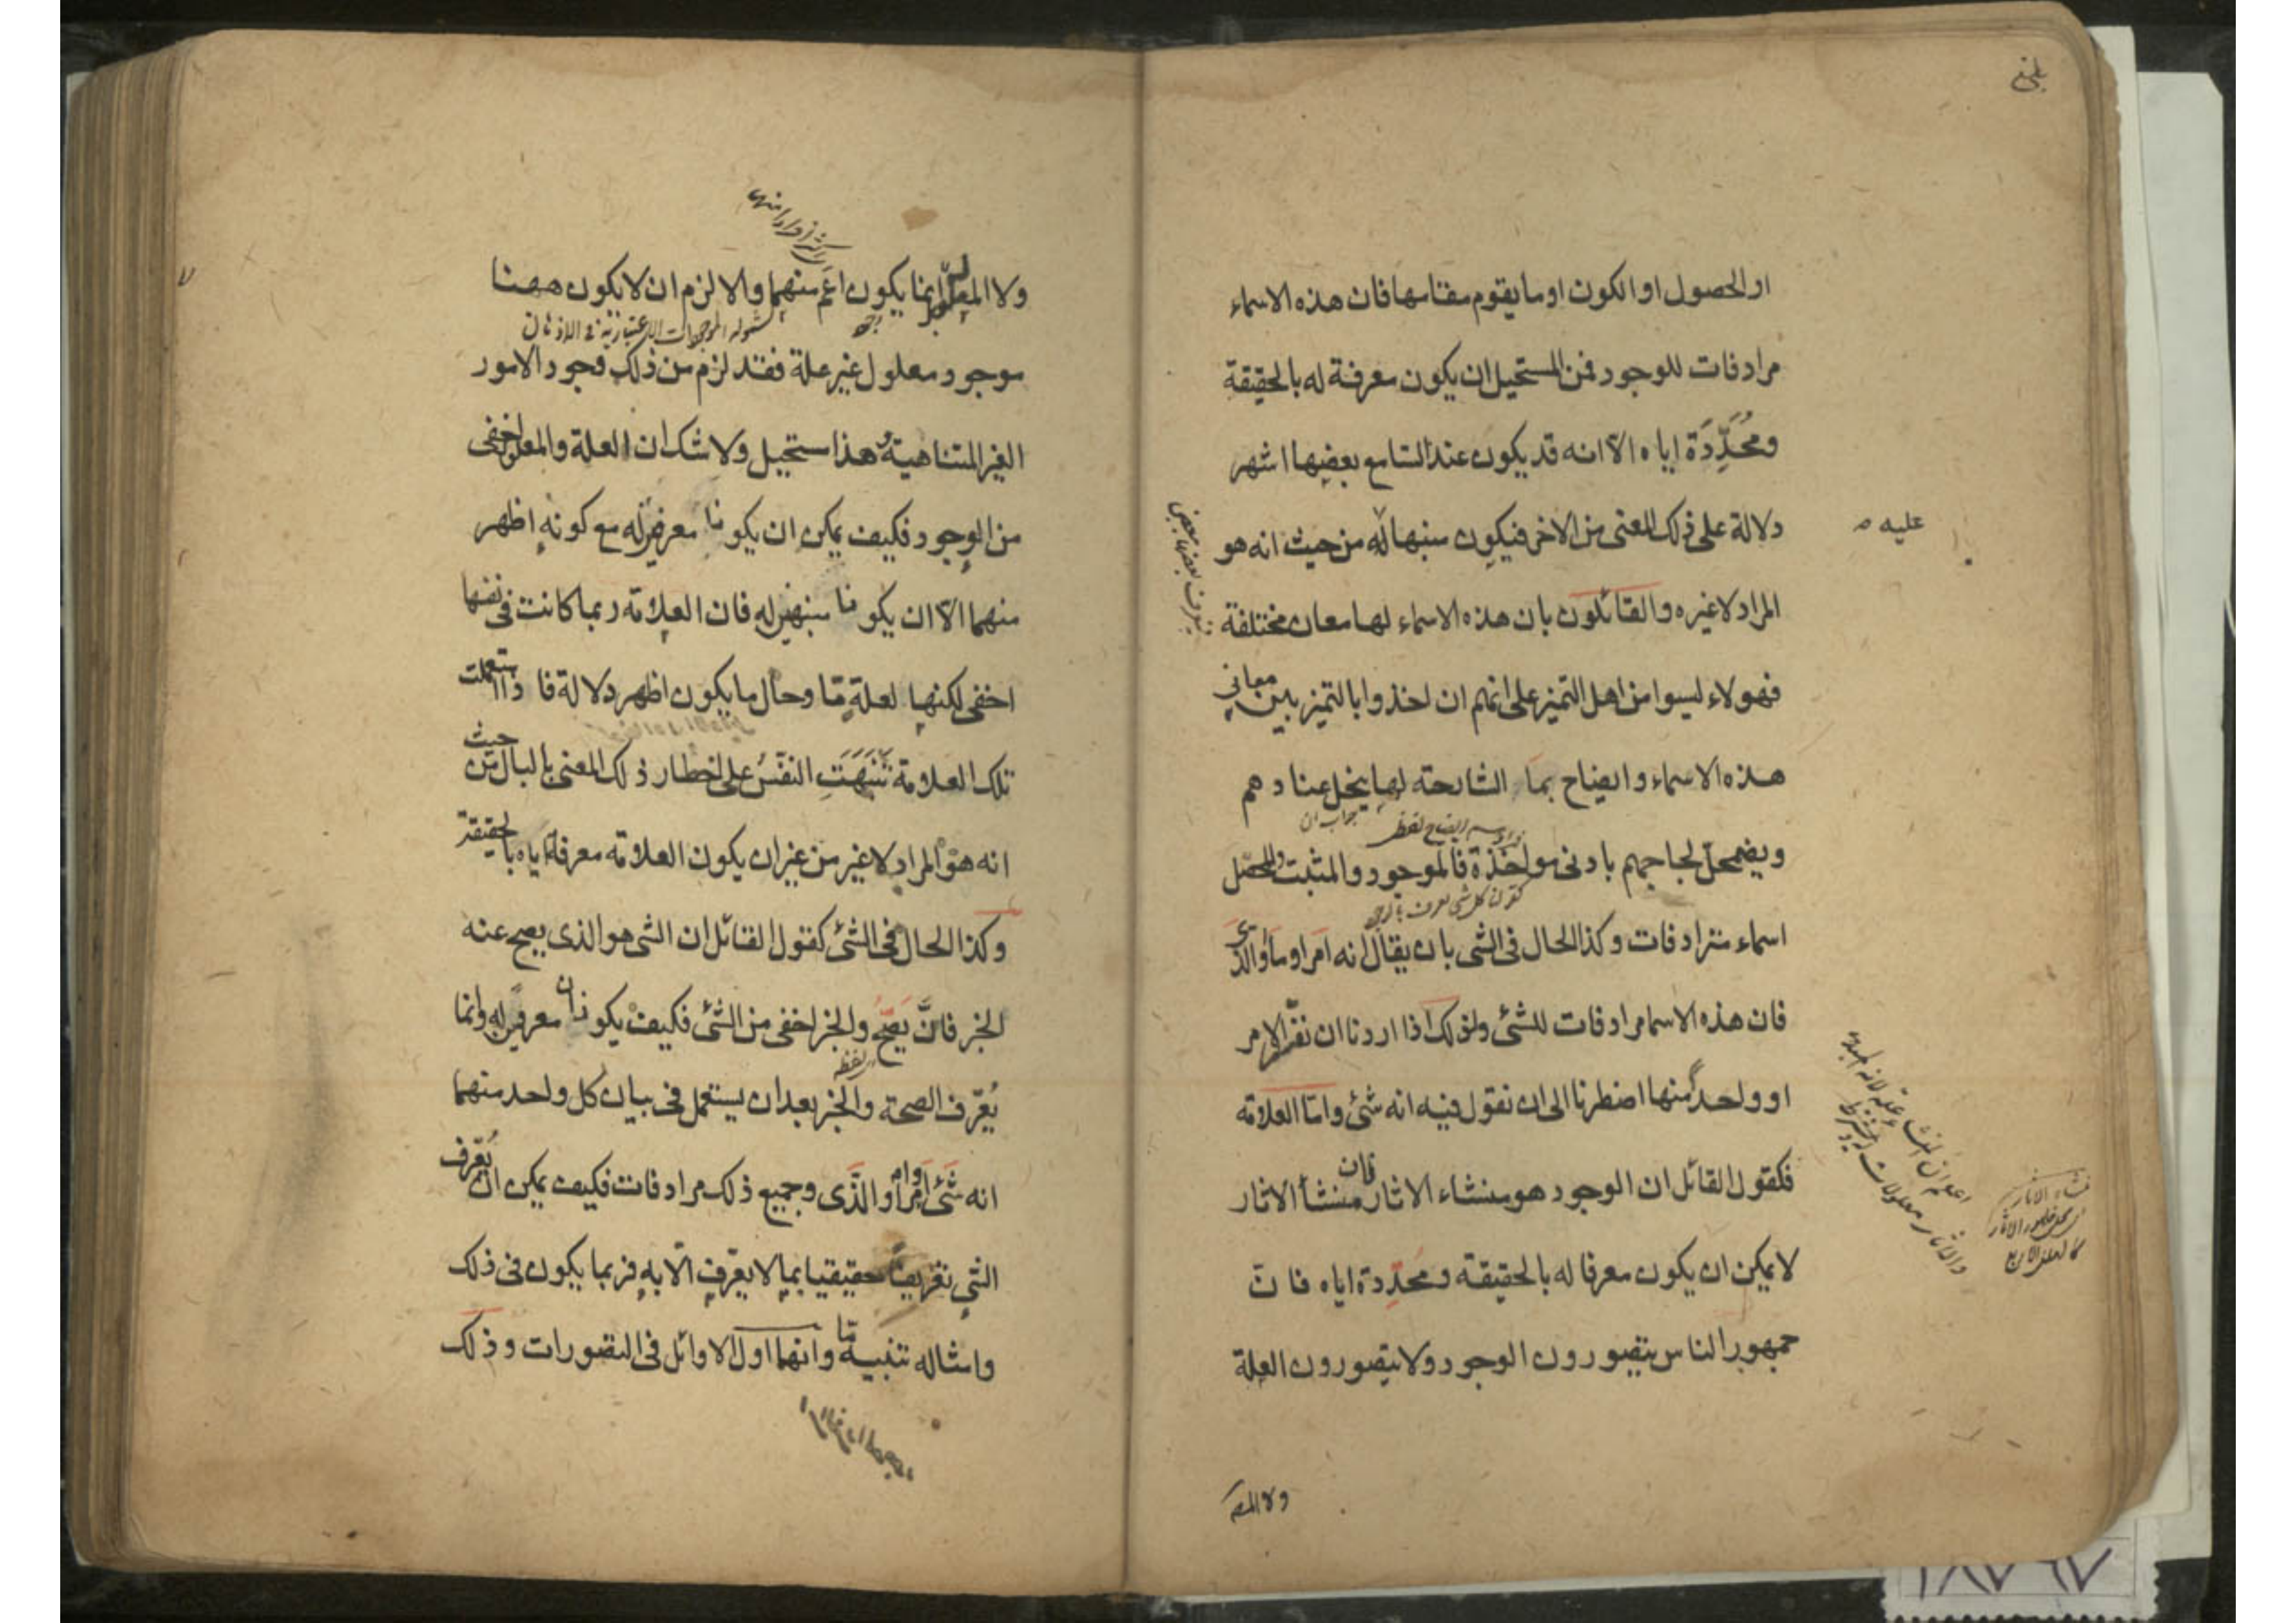 او الحصول او الكون او ما يقوم مقامها فان هذه الاسماء
مرادفات للوجود فمن المستحيل ان يكون معرفة له بالحقيقة
ومُحَدِّدَة اياه الا انه قد يكون عند السامع بعضها اشهر
دلالة على ذلك المعنى من الاخر فيكون منبها له من حيث انه هو
عليه
المراد لا غيره والقائلون بان هذه الاسماء لها معان مختلفة
فهولاء ليسوا من اهل التميز على انهم ان اخذوا بالتميز بين معاني
هذه الاسماء وايضاح بما الشارحة لها ينحل عنادهم
ويضمحل لجاجهم بادنى مواخذة فالموجود والمثبت والمحصل
اسماء مترادفات وكذا الحال فى الشى بان يقال انه امر او ما او الذى
فان هذه الاسما مرادفات للشئ ولذلك اذا اردنا ان نفسر الامر
او واحد منها اضطرنا الى ان نقول فيه انه شئ واما العلامة
فكقول القائل ان الوجود هو منشاء الاثار فان منشأ الاثار
لا يمكن ان يكون معرفا له بالحقيقة ومُحَدِّدة اياه فان
جمهور الناس يتصورون الوجود ولا يتصورون العلة
ولا المعلو
ولا المعلول ايما يكون اعم منهما والا لزم ان لا يكون ههنا
موجود معلول غير علة فقد لزم من ذلك وجود الامور
الغير المتناهية وهذا مستحيل ولا شك ان العلة والمعلول اخفى
من الوجود فكيف يمكن ان يكونا معرفين له مع كونه اظهر
منهما الا ان يكونا منبهين له فان العلامة ربما كانت فى نفسها
اخفى لكنها لعلة مّا وحال ما يكون اظهر دلالة فاذا استعملت
تلك العلامة تَنَبَّهَتِ النفسُ على اخطار ذلك المعنى بالبال من حيث
انه هو المراد لا غير من غير ان يكون العلامة معرفة اياه بالحقيقة
وكذا الحال فى الشئ كقول القائل ان الشى هو الذى يصح عنه
الخبر فانَّ يَصِحُّ والخبر اخفى من الشئ فكيف يكونان معرفين له وانما
يُعَرّف الصحة والخبر بعد ان يستعمل فى بيان كل واحد منهما
انه شَئ او امر او ما او الَّذى وجميع ذلك مرادفات فكيف يمكن ان يُعَرّف
الشئ تعريفاً حقيقيا بما لا يعرّف الّا به فربما يكون فى ذلك
وامثاله تنبيه مّا وانهما اول الاوائل فى التصورات وذلك